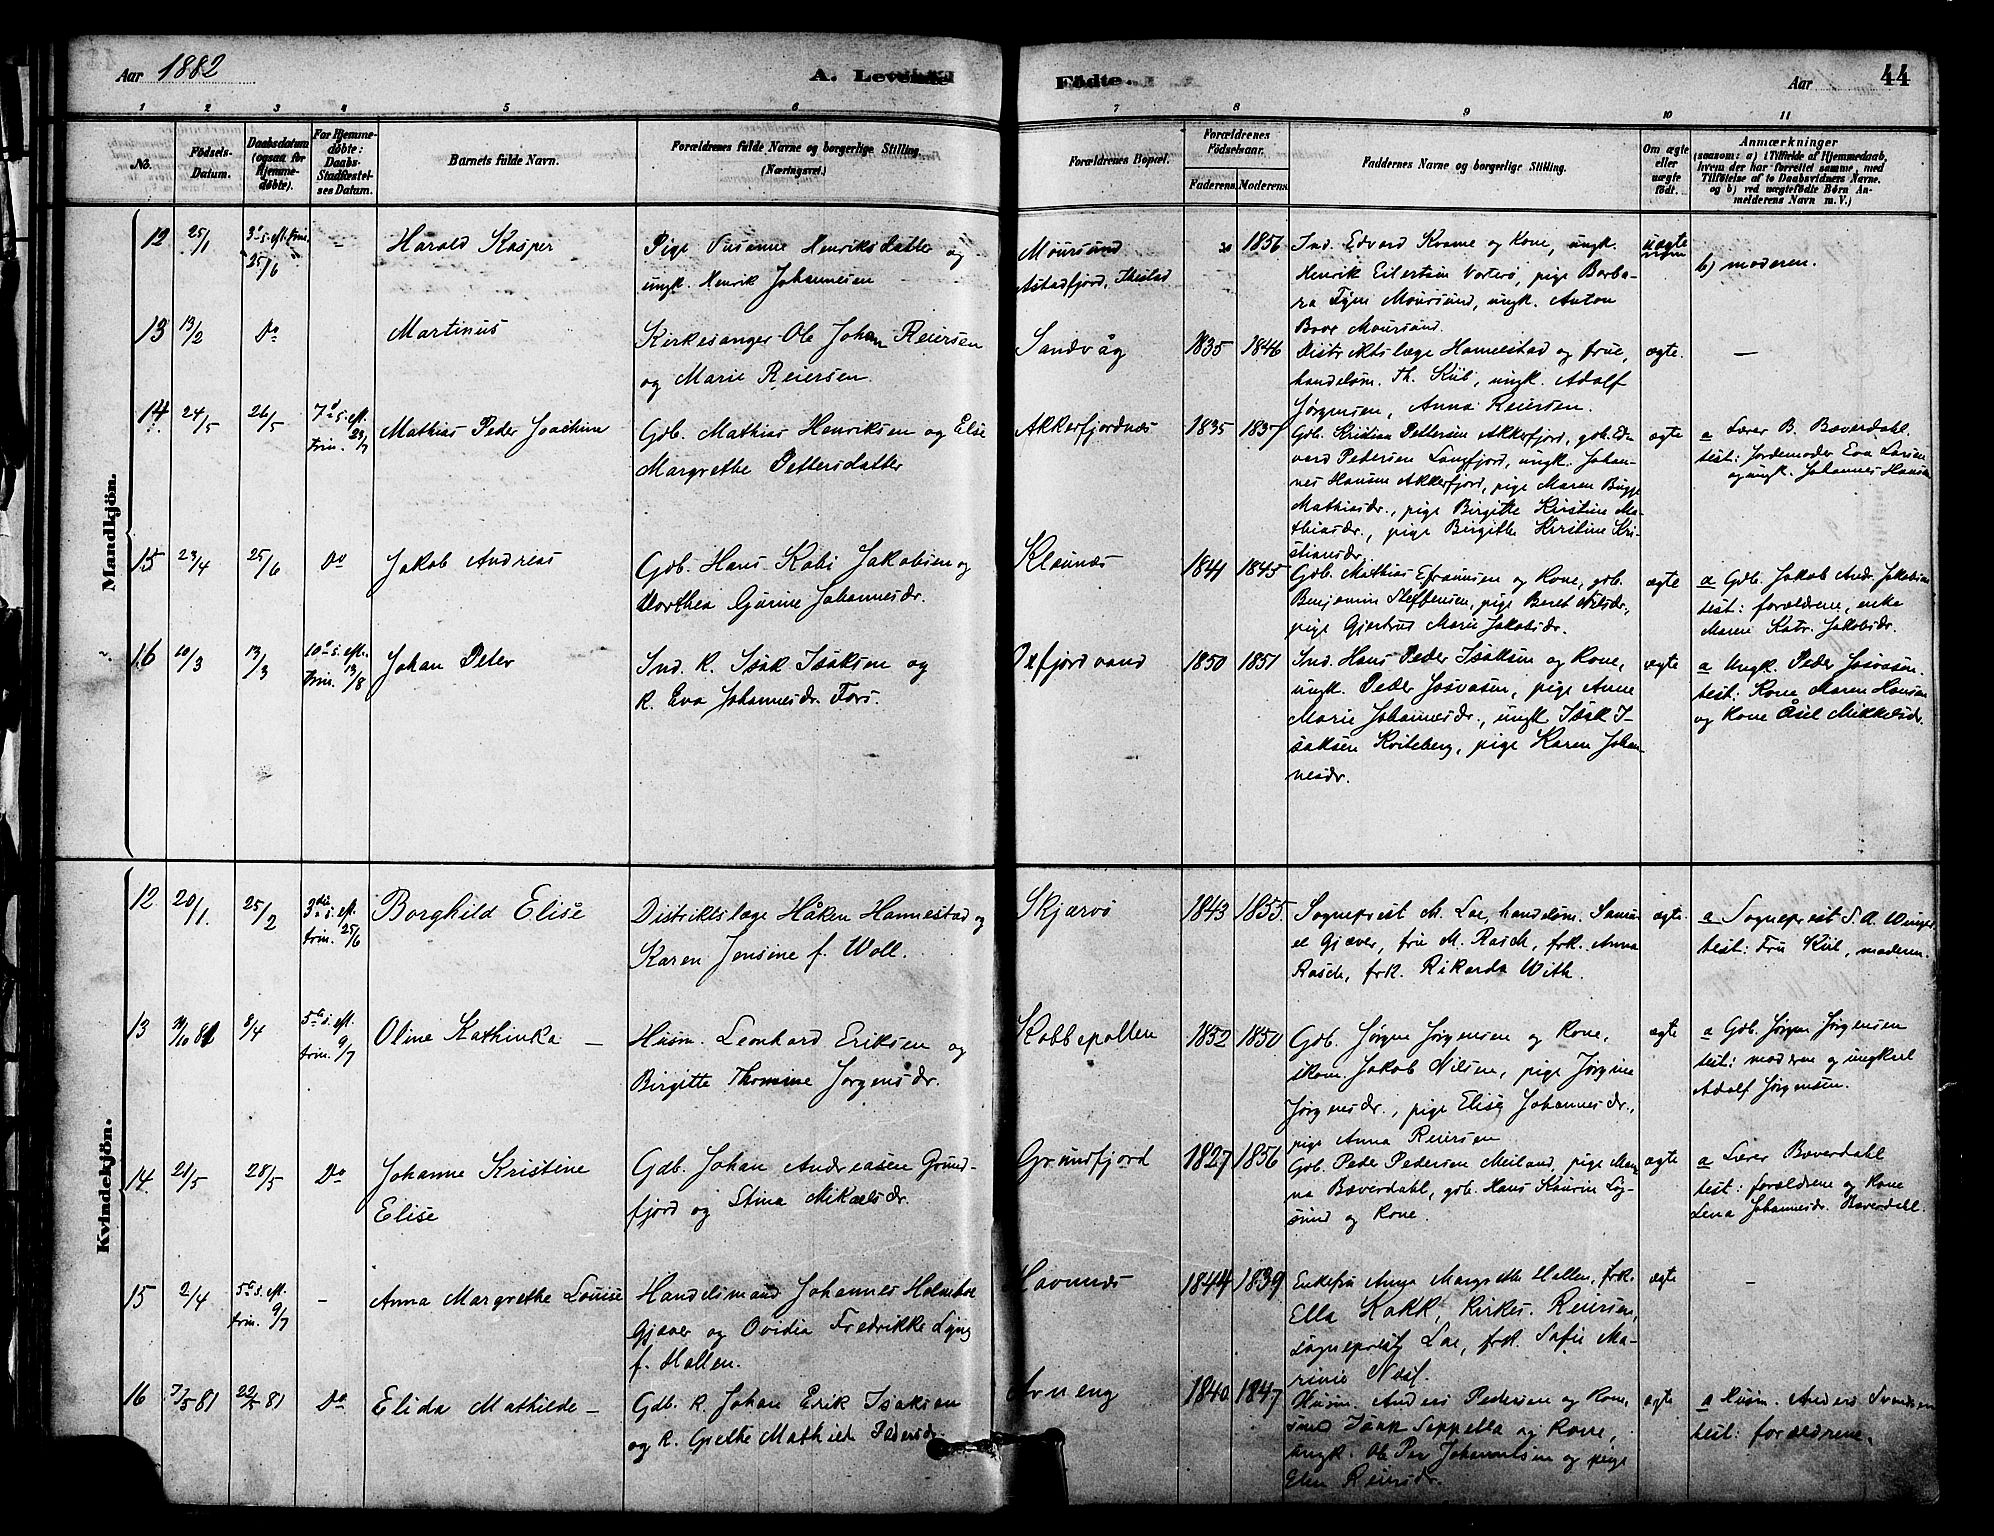 Aar 1882
A. Levende
Födte.
Aar
44
1 2 3 4 5 6 7 8 9 10 11
No.
Födsels-
Datum.
Daabsdatum
(ogsaa for
Hjemme-
döbte).
For Hjemme-
döbte:
Daabs-
Stadfæstel-
ses Datum.
Barnets fulde Navn.
Forældrenes fulde Navne og borgerlige Stilling.
(Næringsvei.)
Forældrenes Bopæl.
Forældrenes
Födselsaar.
Faderens. Moderens.
Faddernes Navne og borgerlige Stilling.
Om ægte
eller
uægte
født.
Anmærkninger
(saasom: a) i Tilfælde af Hjemmedaab,
hvem der har forrettet samme, med
Tilföielse af to Daabsvidners Navne.
og b) ved uægtefödte Börn An-
melderens Navn m. V.)
Mandkjön.
12
25/1
3d s. eft. trin.
25/6
-
Harald Kasper
Pige Susanne Henriksdatter og
ungk. Henrik Johannesen
Moursund
Astafjord, Ibestad
1856
Ind. Edvard Kvame og Kone, ungk.
Henrik Eilertsen Vorterø, pige Barba-
ra Moursund, ungk. Anton
Moursund.
uægte
b) moderen.
13
13/2
Do
Martinus
Kirkesanger Ole Johan Reiersen
og Marie Reiersen.
Sandvåg
1835
1846
Distriktslæge Hannestad og frue,
handelsm. Th. Kiil, ungk. Adolf
Jørgensen, Anna Reiersen.
ægte.
-
14
24/5
26/5
7d s. eft.
trin. 23/7
Mathias Peder Joachim
Gdb. Mathias Henriksen og Else
Margrethe Pettersdatter
Akkerfjordnæs
1835
1837
Gdb. Kristian Pettersen Akkerfjord, gdb. Ed-
vard Pedersen Langfjord, ungk. Johan-
nes Hansen Akkerfjord, pige Maren Bugge
Mathiasdr., pige Birgitte Kirstine Ma-
thiasdr., pige Birgitte Kirstine Kri-
stiansdr.
ægte
a Lærer B. Bæverdahl.
test: Jordemoder Eva Larsen
og ungk. Johannes Hansen
15
23/4
25/6
Do
Jakob Andreas
Gdb. Hans Kabi Jakobsen og
Dorthea Gjørine Johannesdr.
Klaunæs
1841
1845
Gdb. Mathias Efraimsen og Kone, gdb.
Benjamin Steffensen, pige Beret Nilsdr.,
pige Gjertrud Marie Jakobsdr.
ægte
a Gdb. Jakob Andr. Jakobsen
test: forældrene, enke
Maren Katr. Jakobsdr.
16
10/3
13/3
10d s. eft.
trin. 13/8
Johan Peter
Ind. K. Isak Isaksen og
K. Eva Johannesdr. Fors.
Oxfjordvand
1850
1851
Ind. Hans Peder Isaksen og Kone,
ungk. Peder Josvasen, pige Anne
Marie Johannesdr., ungk Isak I-
saksen Kviteberg, pige Karen Johan-
nesdr.
ægte
a Ungk. Peder Josvasen
test: Kone Maren Hansen
og Kone Åsel Mikkelsdr.
Kvindekjön.
12
20/1.
25/2
3die s. eft.
trin. 25/6
Borghild Elise
Distriktslæge Håken Hannestad og
Karen Jensine f. Woll.
Skjærvø
1843
1855.
Sogneprest M. Loe, handelsm. Samu-
el Gjæver, fru M. Rasch, frk. Anna
Rasch, frk. Rikarda With.
ægte.
a Sogneprest S. A. Winge
test: Fru Kiil, moderen.
13
8/4
5te s. eft.
trin. 9/7
Oline Kathinka -
Husm. Leonhard Eriksen og
Birgitte Thomine Jørgensdr.
Kobbepollen
1852
1850
Gdb. Jørgen Jørgensen og Kone,
skom. Jakob Nilsen, pige Jørgine
Jørgensdr., pige Elise Johannesdr.,
pige Anna Reiersen
ægte
a Gdb. Jørgen Jørgensen
test: moderen og ungkarl
Adolf Jørgensen.
14
21/5
28/5
Do
Johanne Kristine
Elise
Gdb. Johan Andreasen Grund-
fjord og Stina Mikaelsdr.
Grundfjord
1827
1856
Gdb. Peder Pedersen Meiland, pige Man-
na Bæverdahl, gdb. Hans Kaurin Lø-
sund og Kone.
ægte
a Lærer Bæverdahl
test: forældrene og Kone
Lena Johannesdr. Bæverdahl.
15
2/4
5te s. eft.
trin. 9/7
-
Anna Margrethe Louise
Handelsmand Johannes Holmboe
Gjæver og Ovidia Fredrikke Lyng
f. Hallen.
Havnnæs
1844
1839
Enkefru Anna Margrethe Hallen, frk.
Ella Kokk, kirkes. Reiersen,
sogneprest Loe, frk. Sofie Ma-
rinie
ægte
-
16
7/5 81
22/5 81
Do
Elida Mathilde -
Gdb. K. Johan Erik Isaksen
og K. Grethe Mathilde Pedersdr.
Arneng
1840
1847
Husm. Anders Pedersen og Kone,
Isak Seppella og Kone,
ungk. Ole Per Johannesen og pige
Elen Reiersdr.
ægte
a Husm. Anders Svendsen
test: forældrene.